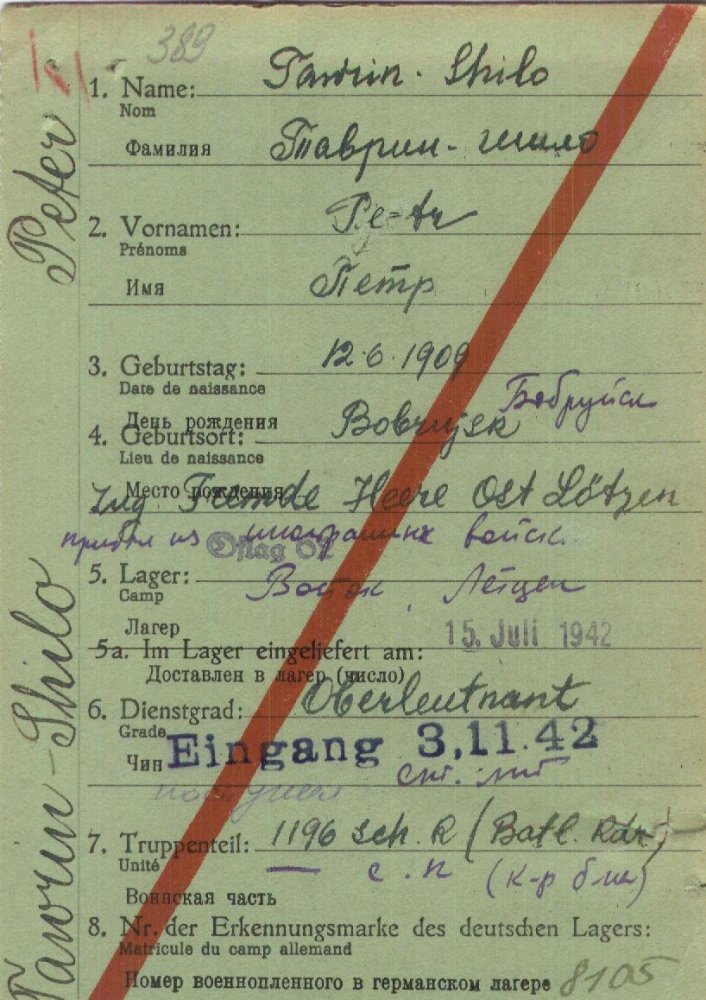 389
1. Name: Tawrin - Shilo
Nom
Фамилия Таврин - шило
2. Vornamen: Petr
Prénoms
Имя Петр
3. Geburtstag: 12.6.1909
Date de naissance
День рождения
Бобруйск
4. Geburtsort: Bobrujsk
Lieu de naissance
Место рождения
Zug. Fremde Heere Ost Lötzen
прибыл из иностранных войск
Oflag
5. Lager: Восток, Летцен
Camp
Лагер
15. Juli 1942
5a. Im Lager eingeliefert am:
Доставлен в лагер (число)
6. Dienstgrad: Oberleutnant
Grade
Eingang 3.11.42
Чин
7. Truppenteil: 1196 Sch. R (Batl. Kdr)
Unité
с.п (к-р б-на)
Воинская часть
8. Nr. der Erkennungsmarke des deutschen Lagers:
Matricule du camp allemand
Номер военнопленного в германском лагере 8105
Tawrin-Shilo Peter